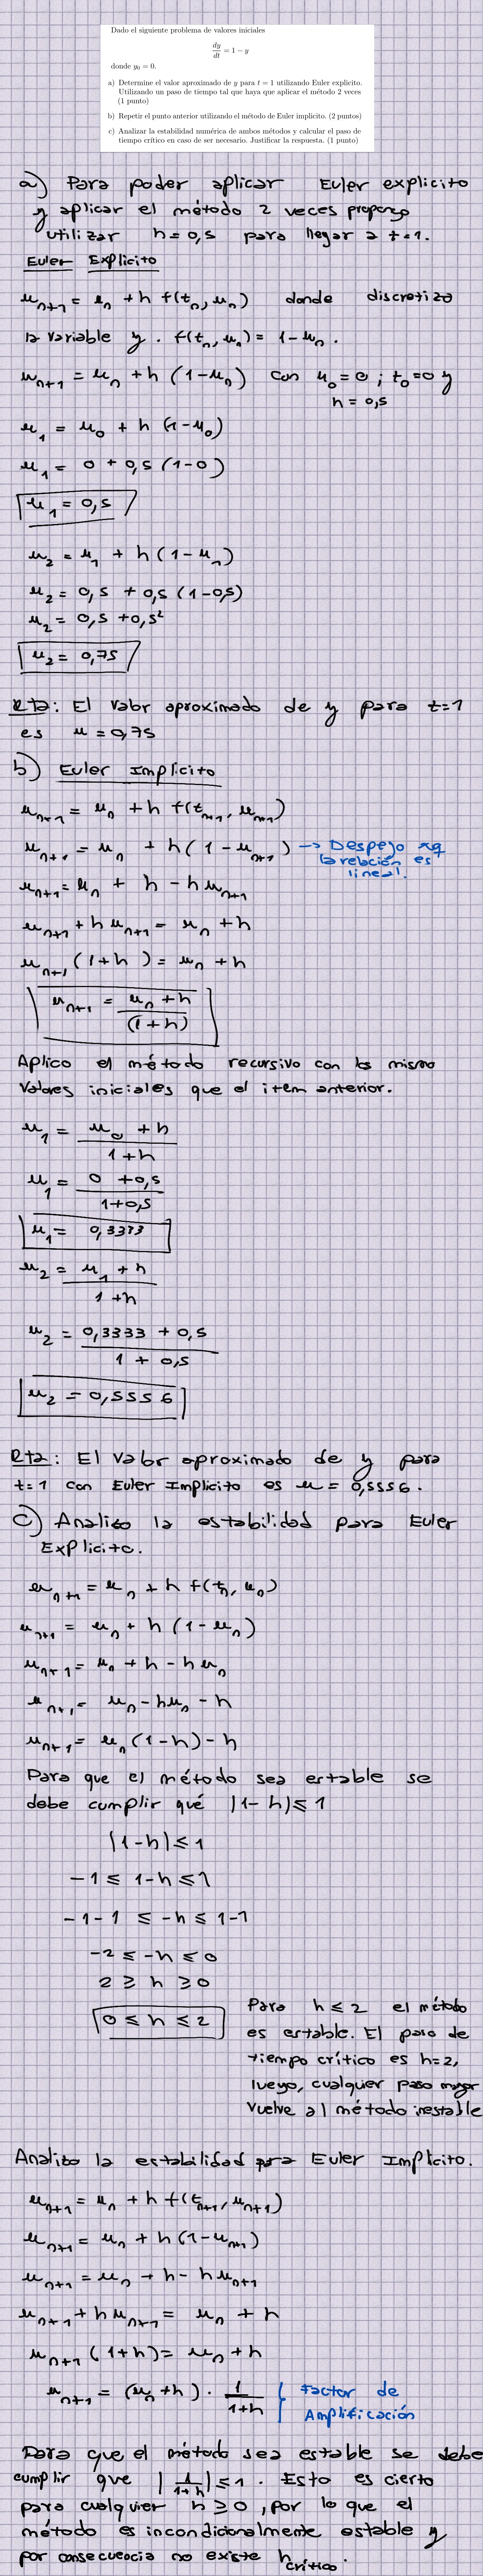 Dado el siguiente problema de valores iniciales
dy/dt = 1 − y
donde y₀ = 0.
a) Determine el valor aproximado de y para t = 1 utilizando Euler explícito.
Utilizando un paso de tiempo tal que haya que aplicar el método 2 veces
(1 punto)
b) Repetir el punto anterior utilizando el método de Euler implícito. (2 puntos)
c) Analizar la estabilidad numérica de ambos métodos y calcular el paso de
tiempo crítico en caso de ser necesario. Justificar la respuesta. (1 punto)
a) Para poder aplicar Euler explicito
y aplicar el método 2 veces propongo
utilizar h = 0,5 para llegar a t=1.
Euler Explicito
u_{n+1} = u_n + h f(t_n, u_n) donde discretizo
la variable y. f(t_n, u_n) = 1 - u_n.
u_{n+1} = u_n + h (1-u_n) con u_0 = 0 ; t_0 = 0 y
h = 0,5
u_1 = u_0 + h (1-u_0)
u_1 = 0 + 0,5 (1-0)
u_1 = 0,5
u_2 = u_1 + h (1-u_1)
u_2 = 0,5 + 0,5 (1-0,5)
u_2 = 0,5 + 0,5²
u_2 = 0,75
Rta: El valor aproximado de y para t=1
es u = 0,75
b) Euler Implicito
u_{n+1} = u_n + h f(t_{n+1}, u_{n+1})
u_{n+1} = u_n + h (1 - u_{n+1}) → Despejo xq
la relación es
lineal.
u_{n+1} = u_n + h - h u_{n+1}
u_{n+1} + h u_{n+1} = u_n + h
u_{n+1} (1+h) = u_n + h
u_{n+1} = (u_n + h)/(1+h)
Aplico el método recursivo con los mismo
valores iniciales que el item anterior.
u_1 = (u_0 + h)/(1+h)
u_1 = (0 + 0,5)/(1+0,5)
u_1 = 0,3333
u_2 = (u_1 + h)/(1+h)
u_2 = (0,3333 + 0,5)/(1 + 0,5)
u_2 = 0,5556
Rta: El valor aproximado de y para
t=1 con Euler Implicito es u = 0,5556.
c) Analizo la estabilidad para Euler
Explicito.
u_{n+1} = u_n + h f(t_n, u_n)
u_{n+1} = u_n + h (1-u_n)
u_{n+1} = u_n + h - h u_n
u_{n+1} = u_n - h u_n - h
u_{n+1} = u_n (1-h) - h
Para que el método sea estable se
debe cumplir qué |1-h| ≤ 1
|1-h| ≤ 1
-1 ≤ 1-h ≤ 1
-1-1 ≤ -h ≤ 1-1
-2 ≤ -h ≤ 0
2 ≥ h ≥ 0
0 ≤ h ≤ 2
Para h ≤ 2 el método
es estable. El paso de
tiempo crítico es h=2,
luego, cualquier paso mayor
vuelve al método inestable
Analizo la estabilidad para Euler Implicito.
u_{n+1} = u_n + h f(t_{n+1}, u_{n+1})
u_{n+1} = u_n + h (1-u_{n+1})
u_{n+1} = u_n + h - h u_{n+1}
u_{n+1} + h u_{n+1} = u_n + h
u_{n+1} (1+h) = u_n + h
u_{n+1} = (u_n + h) · 1/(1+h) { Factor de
Amplificación
Para que el método sea estable se debe
cumplir que |1/(1+h)| ≤ 1. Esto es cierto
para cualquier h ≥ 0, por lo que el
método es incondicionalmente estable y
por consecuencia no existe h_{crítico}.